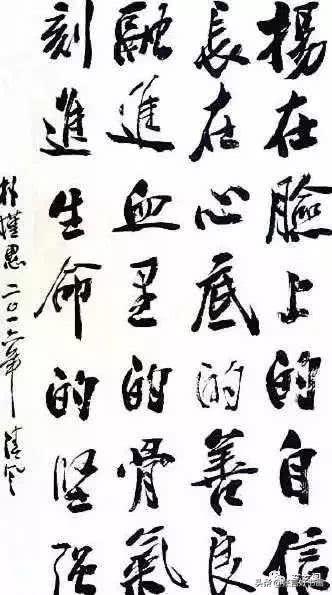 揚在臉上的自信
長在心底的善良
融進血里的骨氣
刻進生命的堅強
二〇一六年 清风
头条